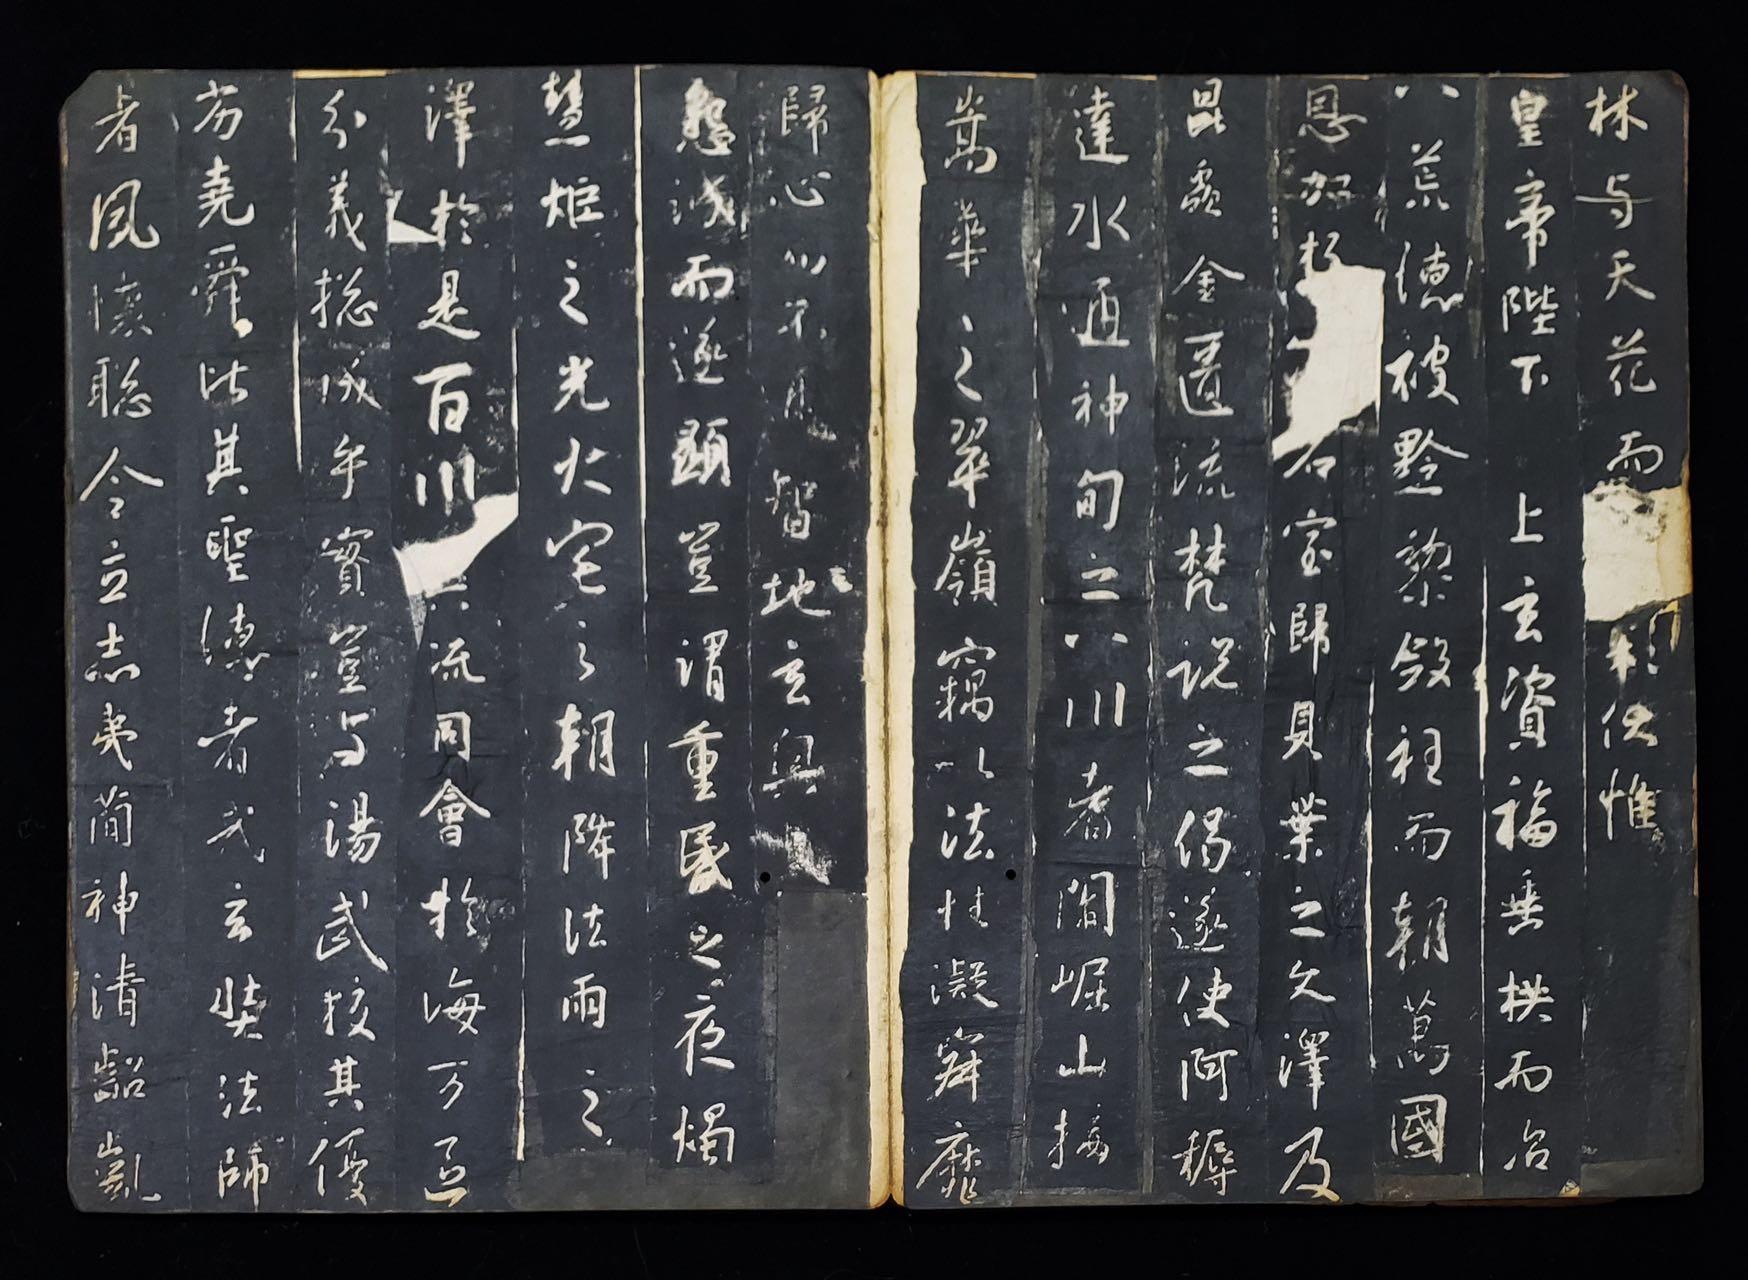 林与天花而彩伏惟
皇帝陛下　上玄資福垂拱而治
八荒德被黔黎斂衽而朝萬國
恩加朽石室歸貝葉之文澤及
昆蟲金匱流梵說之偈遂使阿耨
達水通神甸之八川耆闍崛山接
嵩華之翠嶺竊以法性凝寂靡
歸心而不通智地玄奧
懇誠而遂顯豈謂重昏之夜燭
慧炬之光火宅之朝降法雨之
澤於是百川異流同會於海万區
分義総成乎實豈与湯武校其優
劣堯舜比其聖德者哉玄奘法師
者夙懷聡令立志夷簡神清齠齔